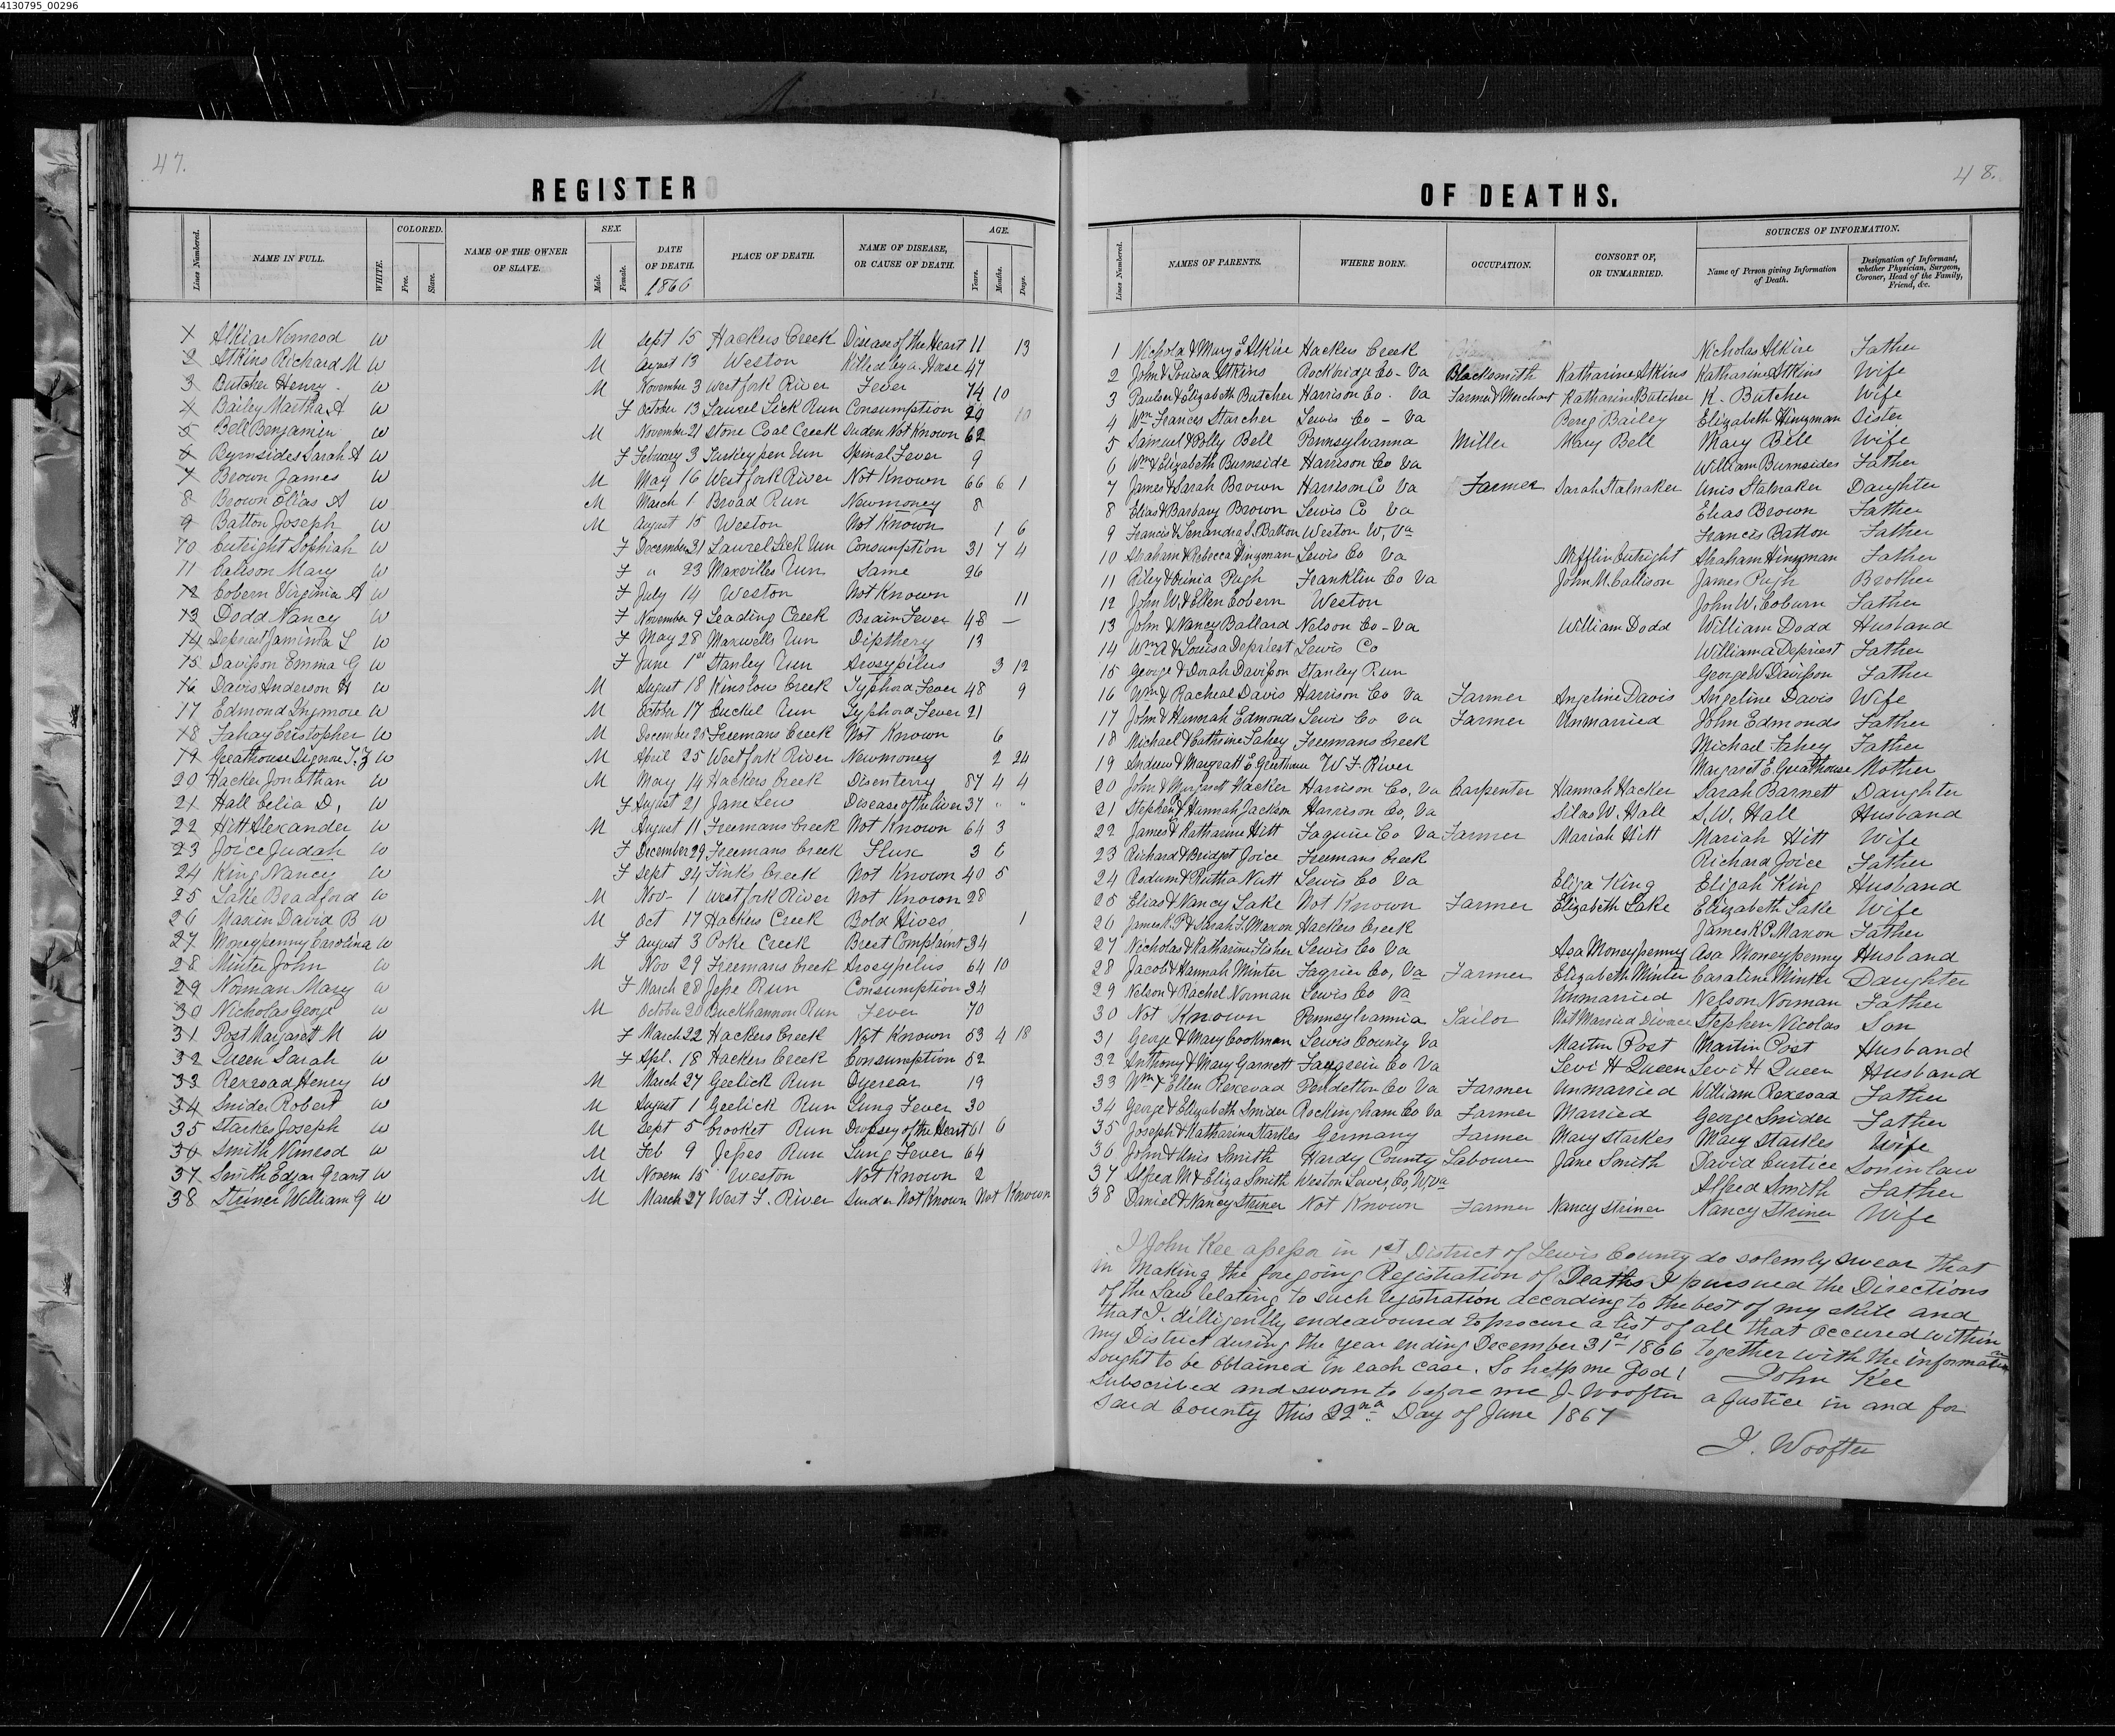 4130795_00296
47.
REGISTER
COLORED. SEX. AGE.
Lines Numbered. NAME IN FULL. WHITE. Free. Slave. NAME OF THE OWNER OF SLAVE. Male. Female. DATE OF DEATH. PLACE OF DEATH. NAME OF DISEASE, OR CAUSE OF DEATH. Years. Months. Days.
1866
1 Alkiar Nomerod W M Sept 15 Hackers Creek Disease of the Heart 11 13
2 Atkins Richard M W M August 13 Weston Killed by a Horse 47
3 Butcher Henry W M November 3 West fork River Fever 74 10
4 Bailey Martha A W F October 13 Laurel Lick Run Consumption 20 10
5 Bell Benjamin W M November 21 Stone Coal Creek Suden Not Known 62
6 Byrnsides Sarah A W F February 3 Turkeypen Run Spinal Fever 9
7 Brown James W M May 16 West fork River Not Known 66 6 1
8 Brown Elias A W M March 1 Broad Run Newmoney 8
9 Batton Joseph W M August 15 Weston Not Known 1 6
10 Cutright Sophiah W F December 31 Laurel Lick Run Consumption 31 7 4
11 Calison Mary W F " 23 Maxvilles Run Same 26
12 Cobern Virginia A W F July 14 Weston Not Known 11
13 Dodd Nancy W F November 9 Leading Creek Brain Fever 48 —
14 Depriest Jaminta L W F May 28 Maxwells Run Dipthery 13
15 Davisson Emma G W F June 1st Stanley Run Arosypilus 3 12
16 Davis Anderson H W M August 18 Kinslow Creek Typhord Fever 48 9
17 Edmond Ingmore W M October 17 Cuckel Run Typhord Fever 21
18 Fahay Cristopher W M December 25 Freemans Creek Not Known 6
19 Greathouse Signore T. Z W M April 25 West fork River Newmoney 2 24
20 Hacker Jonathan W M May 14 Hackers Creek Disenterry 87 4 4
21 Hall Celia D. W F August 21 Jane Lew Disease of the liver 37 " "
22 Hitt Alexander W M August 11 Freemans Creek Not Known 64 3
23 Joice Judah W F December 29 Freemans Creek Flux 3 6
24 King Nancy W F Sept 24 Finks Creek Not Known 40 5
25 Lake Bradford W M Nov- 1 West fork River Not Known 28
26 Maxin David B W M Oct 17 Hackers Creek Bold Hives 1
27 Moneypenny Carolina W F August 3 Poke Creek Brest Complaint 34
28 Minter John W M Nov 29 Freemans Creek Arosypelus 64 10
29 Norman Mary W F March 28 Jesse Run Consumption 34
30 Nicholas George W M October 20 Buckhannon Run Fever 70
31 Post Margaret M W F March 22 Hackers Creek Not Known 53 4 18
32 Queen Sarah W F Apl. 18 Hackers Creek Consumption 52
33 Rexroad Henry W M March 27 Geelick Run 19
34 Snider Robert W M August 1 Geelick Run Lung Fever 30
35 Starkes Joseph W M Sept 5 Crooket Run Dropsey of the Heart 61 6
36 Smith Nimrod W M Feb 9 Jesses Run Lung Fever 64
37 Smith Edgar Grant W M Novem 15 Weston Not Known 2
38 Steiner William G W M March 27 West F. River Suden Not Known Not Known
48.
OF DEATHS.
SOURCES OF INFORMATION.
Lines Numbered. NAMES OF PARENTS. WHERE BORN. OCCUPATION. CONSORT OF, OR UNMARRIED. Name of Person giving Information of Death. Designation of Informant, whether Physician, Surgeon, Coroner, Head of the Family, Friend, &c.
1 Nichola & Mary E Alkire Hackers Creek Nicholas Alkire Father
2 John & Louisa Atkins Rockbridge Co- Va Blacksmith Katharine Atkins Katharine Atkins Wife
3 Paulser & Elizabeth Butcher Harrison Co. Va Farmer & Merchant Katharine Butcher K. Butcher Wife
4 Wm Frances Starcher Lewis Co - Va Bereg Bailey Elizabeth Hinzman Sister
5 Samuel & Polly Bell Pennsylvanna Miller Mary Bell Mary Bell Wife
6 Wm & Elizabeth Burnside Harrison Co Va William Burnsides Father
7 James & Sarah Brown Harrison Co Va Farmer Sarah Stalnaker Unis Stalnaker Daughter
8 Elias & Barbary Brown Lewis Co Va Elias Brown Father
9 Francis & Senandra L Batton Weston W. Va Francis Batton Father
10 Abraham & Rebecca Hinzman Lewis Co Va Mifflin Cutright Abraham Hinzman Father
11 Riley & Orinia Pugh Franklin Co Va John M. Callison James Pugh Brother
12 John W. & Ellen Cobern Weston John W. Coburn Father
13 John & Nancy Ballard Nelson Co - Va William Dodd William Dodd Husband
14 Wm A & Louisa Depriest Lewis Co William A Depriest Father
15 George & Dorah Davisson Stanley Run George W Davisson Father
16 Wm & Racheal Davis Harrison Co Va Farmer Angeline Davis Angeline Davis Wife
17 John & Hannah Edmonds Lewis Co Va Farmer Unmarried John Edmonds Father
18 Michael & Cathrine Fahey Freemans Creek Michael Fahey Father
19 Andrew & Margreatt E Greathouse W F. River Margaret E. Greathouse Mother
20 John & Margarett Hacker Harrison Co, Va Carpenter Hannah Hacker Sarah Barnett Daughter
21 Stephen & Hannah Jackson Harrison Co, Va Silas W. Hall S. W. Hall Husband
22 James & Katharine Hitt Faquier Co Va Farmer Mariah Hitt Mariah Hitt Wife
23 Richard & Bridget Joice Freemans Creek Richard Joice Father
24 Rodum & Rutha Nutt Lewis Co Va Eliga King Elijah King Husband
25 Elias & Nancy Lake Not Known Farmer Elizabeth Lake Elizabeth Lake Wife
26 James K. P & Sarah F. Maxon Hackers Creek James K P. Maxon Father
27 Nicholas & Katharine Fisher Lewis Co Va Asa Moneypenny Asa Moneypenny Husband
28 Jacob & Hannah Minter Fagrier Co, Va Farmer Elizabeth Minter Caraline Minter Daughter
29 Nelson & Rachel Norman Lewis Co Va Unmarried Nelson Norman Father
30 Not Known Pennsylvannia Tailor Not Married Divoce Stephen Nicolas Son
31 George & Mary Cookman Lewis County Va Martin Post Martin Post Husband
32 Anthony & Mary Garnett Co Va Levi H Queen Levi H Queen Husband
33 Wm & Ellen Rexroad Pendelton Co Va Farmer Unmarried William Rexroad Father
34 George & Elizabeth Snider Rockingham Co Va Farmer Married George Snider Father
35 Joseph & Katharine Starkes Germany Farmer Mary Starkes Mary Starkes Wife
36 John & Unis Smith Hardy County Labourer Jane Smith David Curtice Soninlaw
37 Alfred M & Eliza Smith Weston Lewis, Co, W, Va Alfred Smith Father
38 Daniel & Nancy Steiner Not Known Farmer Nancy Steiner Nancy Steiner Wife
I John Kee assessor in 1st District of Lewis County do solemly swear that
in making the foregoing Registration of Deaths I pursued the Directions
of the Law relating to such registration according to the best of my skill and
that I. dilligently endeavoured to procure a list of all that occured within
my District during the year ending December 31st 1866 together with the information
sought to be obtained in each case. So help me God! John Kee
Subscribed and sworn to before me J. Woofter a Justice in and for
said County this 22nd Day of June 1867
J. Woofter